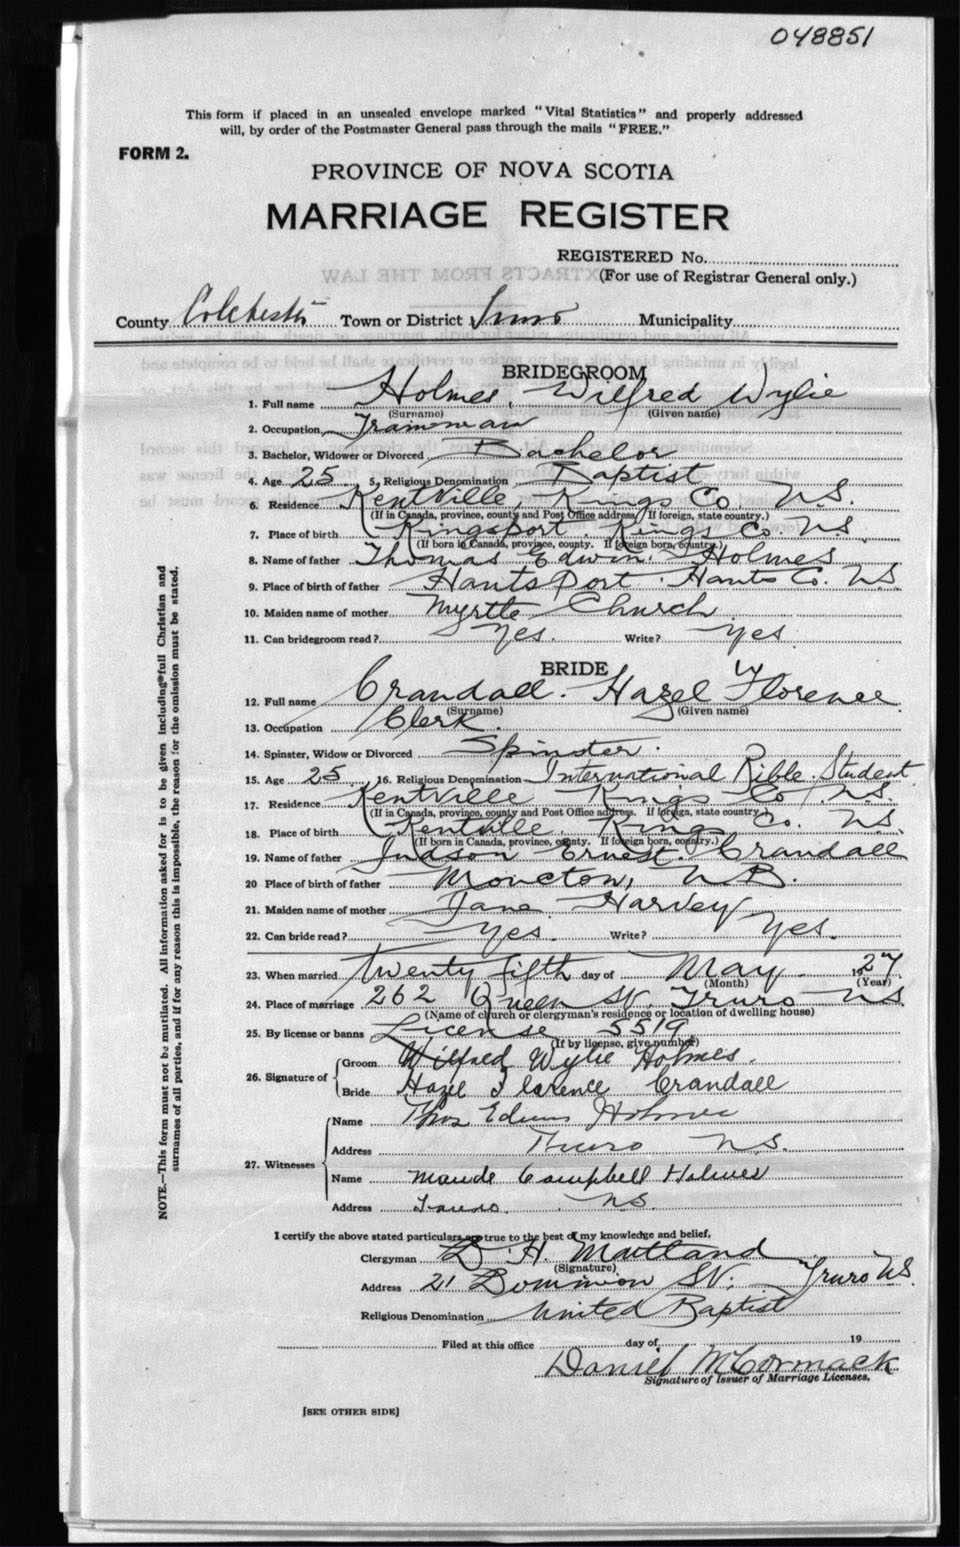 048851
This form if placed in an unsealed envelope marked "Vital Statistics" and properly addressed
will, by order of the Postmaster General pass through the mails "FREE."
FORM 2.
PROVINCE OF NOVA SCOTIA
MARRIAGE REGISTER
REGISTERED No.
(For use of Registrar General only.)
County Colchester Town or District Truro Municipality
BRIDEGROOM
1. Full name Holmes, Wilfred Wylie
(Surname) (Given name)
2. Occupation Trainman
3. Bachelor, Widower or Divorced Bachelor
4. Age 25 5. Religious Denomination Baptist
6. Residence Kentville, Kings Co. N.S.
(If in Canada, province, county and Post Office address. If foreign, state country.)
7. Place of birth Kingsport, Kings Co. N.S.
(If born in Canada, province, county. If foreign born, country.)
8. Name of father Thomas Edwin Holmes
9. Place of birth of father Hantsport. Hants Co. N.S.
10. Maiden name of mother Myrtle Church
11. Can bridegroom read? Yes. Write? Yes
BRIDE
12. Full name Crandall. Hazel Florence
(Surname) (Given name)
13. Occupation Clerk
14. Spinster, Widow or Divorced Spinster.
15. Age 25 16. Religious Denomination International Bible Student
17. Residence Kentville Kings Co. N.S.
(If in Canada, province, county and Post Office address. If foreign, state country.)
18. Place of birth Kentville. Kings Co. N.S.
(If born in Canada, province, county. If foreign born, country.)
19. Name of father Judson Ernest Crandall
20 Place of birth of father Moncton, N.B.
21. Maiden name of mother Jane Harvey
22. Can bride read? Yes. Write? Yes.
23. When married twenty fifth day of May 1927
(Month) (Year)
24. Place of marriage 262 Queen St. Truro N.S.
(Name of church or clergyman's residence or location of dwelling house)
25. By license or banns License 5519
(If by license, give number)
26. Signature of
Groom Wilfred Wylie Holmes.
Bride Hazel Florence Crandall
27. Witnesses
Name Thos Edwin Holmes
Address Truro N.S.
Name Maude Campbell Holmes
Address Truro. N.S.
I certify the above stated particulars are true to the best of my knowledge and belief,
Clergyman D. H. Maitland
(Signature)
Address 21 Dominion St. Truro N.S.
Religious Denomination United Baptist
Filed at this office day of 19
Daniel McCormack
Signature of Issuer of Marriage Licenses.
[SEE OTHER SIDE]
NOTE.—This form must not be mutilated. All information asked for is to be given including full Christian and
surnames of all parties, and if for any reason this is impossible, the reason for the omission must be stated.